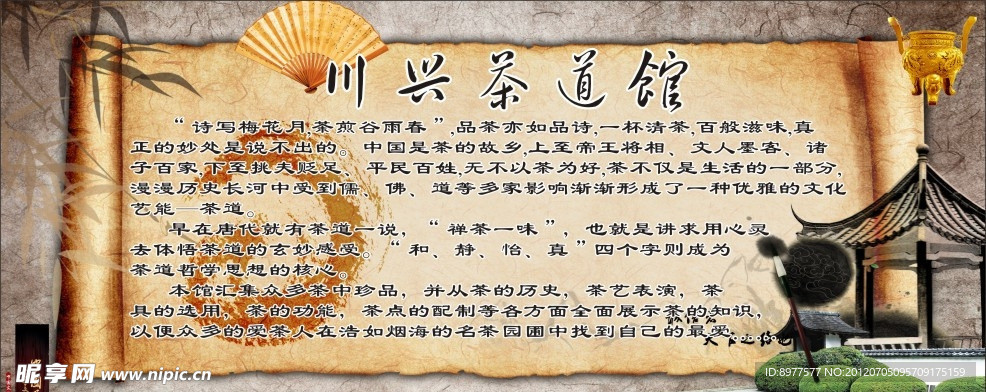 川兴茶道馆
“诗写梅花月,茶煎谷雨春”,品茶亦如品诗,一杯清茶,百般滋味,真
正的妙处是说不出的。中国是茶的故乡,上至帝王将相、文人墨客、诸
子百家,下至挑夫贩足、平民百姓,无不以茶为好,茶不仅是生活的一部分,
漫漫历史长河中受到儒、佛、道等多家影响渐渐形成了一种优雅的文化
艺能—茶道。
早在唐代就有茶道一说，“禅茶一味”，也就是讲求用心灵
去体悟茶道的玄妙感受。“和、静、怡、真”四个字则成为
茶道哲学思想的核心。
本馆汇集众多茶中珍品，并从茶的历史，茶艺表演，茶
具的选用，茶的功能，茶点的配制等各方面全面展示茶的知识，
以便众多的爱茶人在浩如烟海的名茶园圃中找到自己的最爱……
昵享网 www.nipic.cn
ID:8977577 NO:20120705095709175159